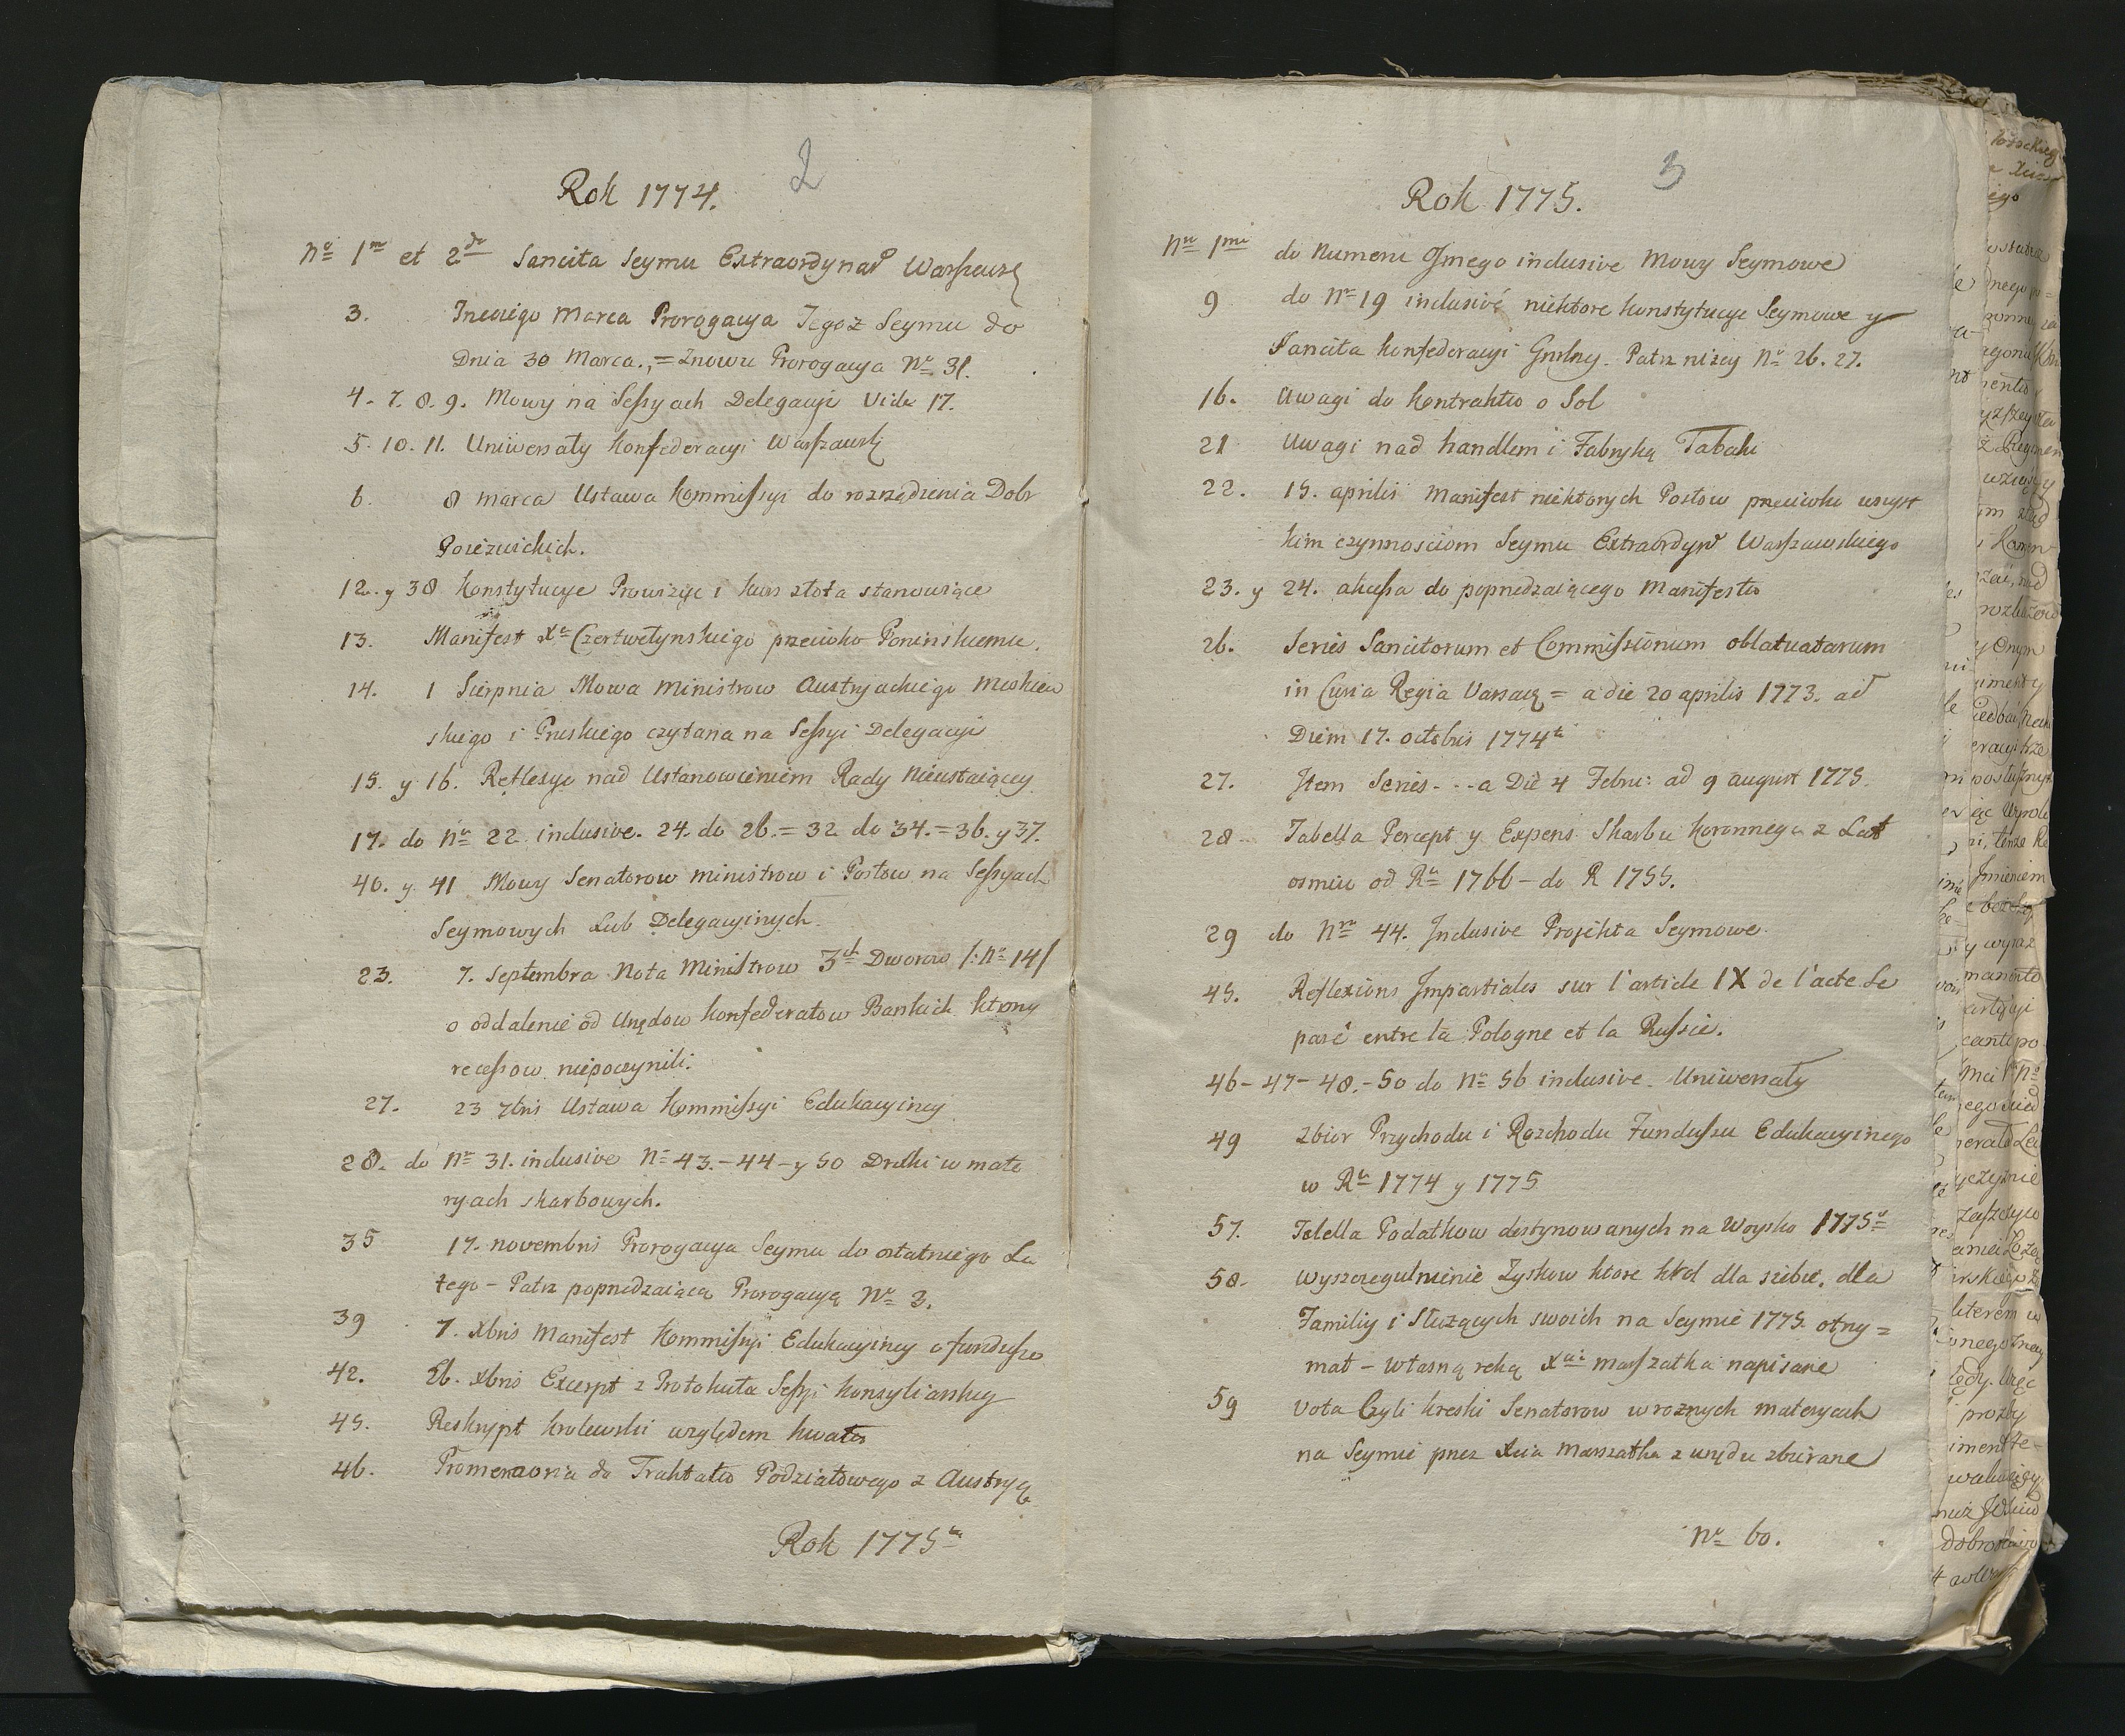 2
Rok 1774.
Nº 1ᵐ et 2ᵈᵒ Sancita Seymu Extraordynar Warszawsꝫ
3. Inediego Marca Prorogacya Tegoz Seymu do
Dnia 30 Marca., = Znowu Prorogacya Nº 31.
4. 7. 8. 9. Mowy na Sessyach Delegacyi Vide 17.
5. 10. 11. Uniwersały Konfederacyi Warszawsk
6. 8 marca Ustawa Kommissyi do rozrządzenia Dobr
Poiezuickich.
12. y 38 Konstytucye Prowizye i kurs złota stanowiące
13. Manifest Xᵃ Czertwetynskiego przeciwko Poninskiemu.
14. 1 Sierpnia Mowa Ministrow Austryackiego Moskiew
skiego i Pruskiego czytana na Sessyi Delegacyi
15. y 16. Reflexye nad Ustanowieniem Rady Nieustaiącey
17. do Nʳᵘ 22 inclusive. 24. do 26. = 32 do 34. = 36. y 37.
40. y 41 Mowy Senatorow ministrow i Posłow na Sessyach
Seymowych Lub Delegacyinych
23. 7. Septembra Nota Ministrow 3ᶜʰ Dworow /: Nº 14/
o oddalenie od Urzędow Konfederatow Barskich ktorzy
recessow niepoczynili.
27. 23 7bris Ustawa Kommissyi Edukacyiney
28. do Nʳᵘ 31. inclusive Nº 43. - 44 - y 50 Druki w mate
ryach skarbowych.
35 17. novembris Prorogacya Seymu do ostatniego Lu
tego - Patrz poprzedzaiącą Prorogacyą Nº 3.
39 7. Xbris Manifest Kommissyi Edukacyiney o funduszo
42. 26. Xbris Excerpt z Protokuła Sessyi Konsyliarskey
45. Reskrypt Krolewski względem kwater
46. Promemoria do Traktatu Podziałowego z Austryą
Rok 1775ᵗᵒ
3
Rok 1775.
Nʳᵘ 1ᵐⁱ do Numeru 9mego inclusive Mowy Seymowe
9 do Nʳᵘ 19 inclusivé niektore Konstytucye Seymowe y
Sancita Konfederacyi Gnrlney. Patrz niżey Nº 26. 27.
16. Uwagi do Kontraktu o Sol
21 Uwagi nad handlem i Fabryką Tabaki
22. 15. aprilis Manifest niektorych Posłow przeciwko wszyst
kim czynnosciom Seymu Extraordyn Warszawskiego
23. y 24. akcessa do poprzedzaiącego Manifestu
26. Series Sancitorum et Commissionum oblatuatarum
in Curia Regia Varsaꝫ = a die 20 aprilis 1773. ad
Diem 17. octobris 1774ᵗⁱ
27. Item Series - - - a Die 4 Febru: ad 9 august 1775.
28 - Tabella Percept y Expens Skarbu Koronnego z Lat
osmiu od Rᵘ 1766 - do R 1755.
29 do Nʳᵒ 44. Inclusive Projekta Seymowe
45. Reflexions Impartiales sur l'article IX de l'acte Se
paré entre la Pologne et la Russie.
46 - 47 - 48. - 50 do Nº 56 inclusive. Uniwersały
49 Zbior Przychodu i Rozchodu Funduszu Edukacyinego
w Rᵘ 1774 y 1775
57. Tabella Podatkow destynowanych na Woysko 1775ᵘ
58 - Wyszczegulnienie Zyskow ktore ktol dla siebie, dla
Familiy i Służących swoich na Seymie 1775. otrzy =
mał - własną ręką Xᶜⁱᵃ marszałka napisane
59 Vota Czyli kreski Senatorow w roznych materyach
na Seymie przez Xcia Marszałka z urzędu zbierane
Nº 60.